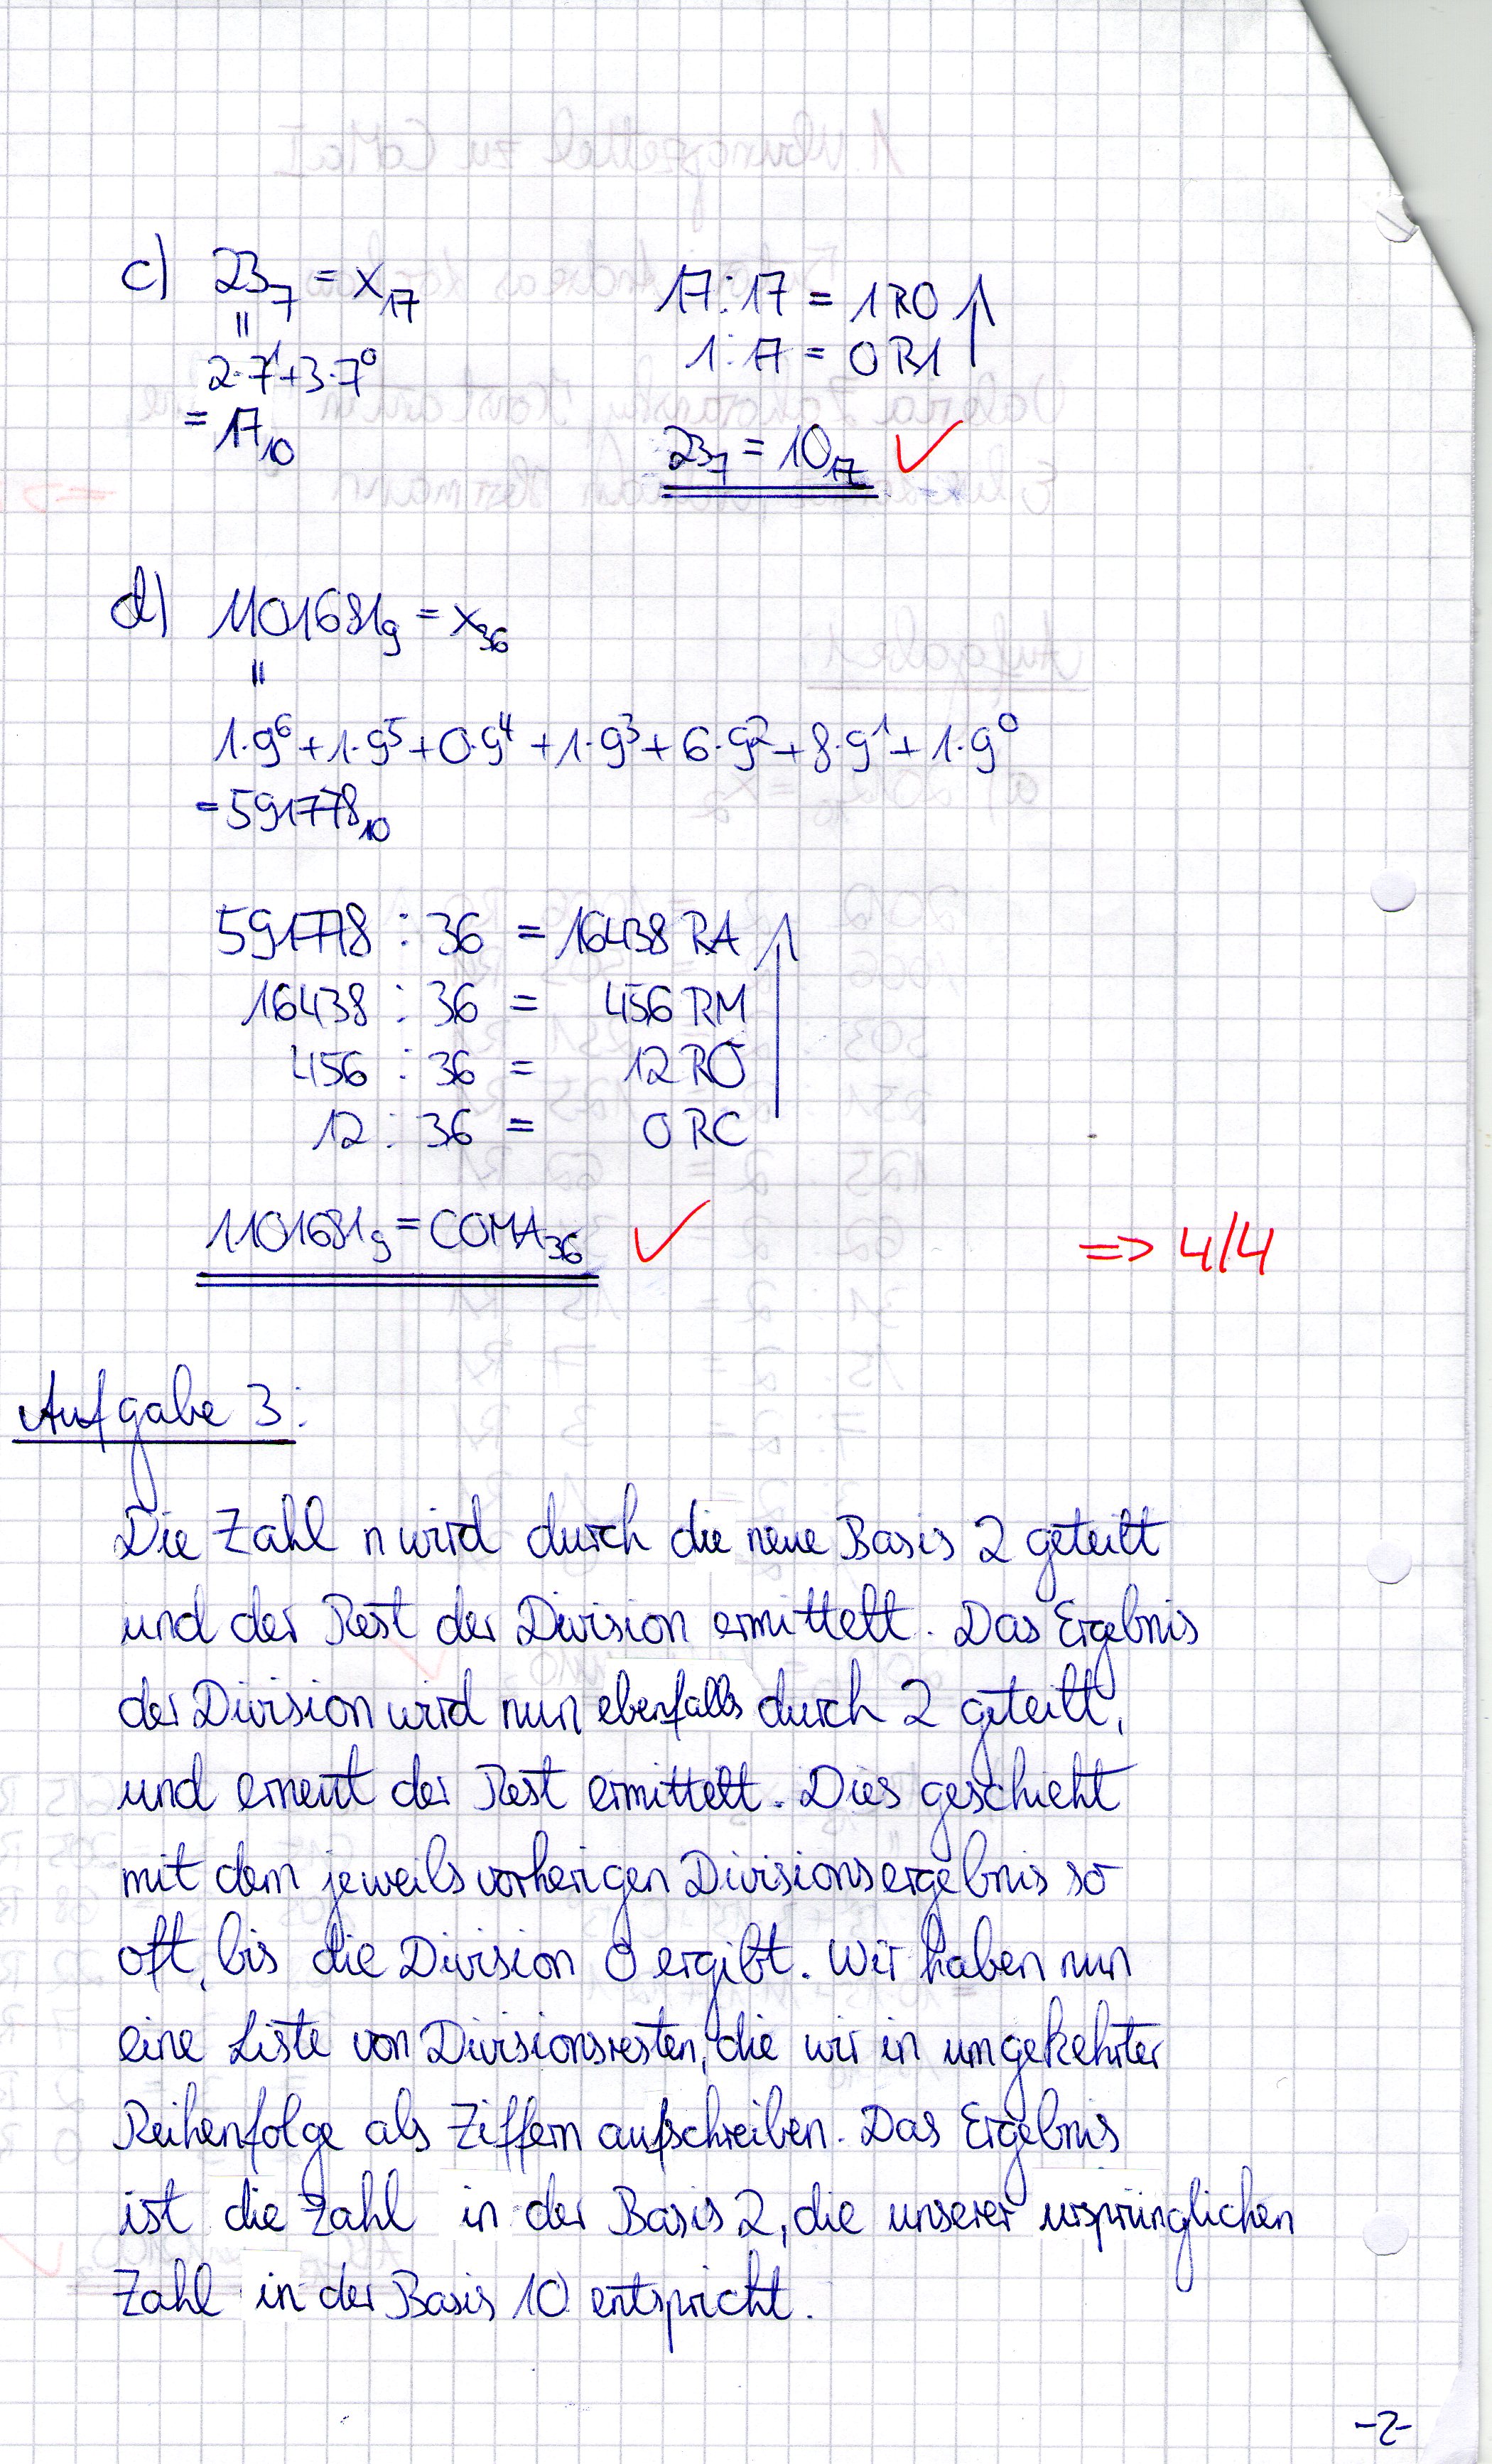 c) 23₇ = x₁₇
17 : 17 = 1 R0
"
2·7¹+3·7⁰
1 : 17 = 0 R1
= 17₁₀
23₇ = 10₁₇ ✓
d) 1101681₉ = x₃₆
"
1·9⁶+1·9⁵+0·9⁴+1·9³+6·9²+8·9¹+1·9⁰
= 591778₁₀
591778 : 36 = 16438 RA
16438 : 36 = 456 RM
456 : 36 = 12 RO
12 : 36 = 0 RC
1101681₉ = COMA₃₆ ✓
=> 4/4
Aufgabe 3:
Die Zahl n wird durch die neue Basis 2 geteilt
und der Rest der Division ermittelt. Das Ergebnis
der Division wird nun ebenfalls durch 2 geteilt,
und erneut der Rest ermittelt. Dies geschieht
mit dem jeweils vorherigen Divisionsergebnis so
oft, bis die Division 0 ergibt. Wir haben nun
eine Liste von Divisionsresten, die wir in umgekehrter
Reihenfolge als Ziffern aufschreiben. Das Ergebnis
ist die Zahl in der Basis 2, die unserer ursprünglichen
Zahl in der Basis 10 entspricht.
-2-